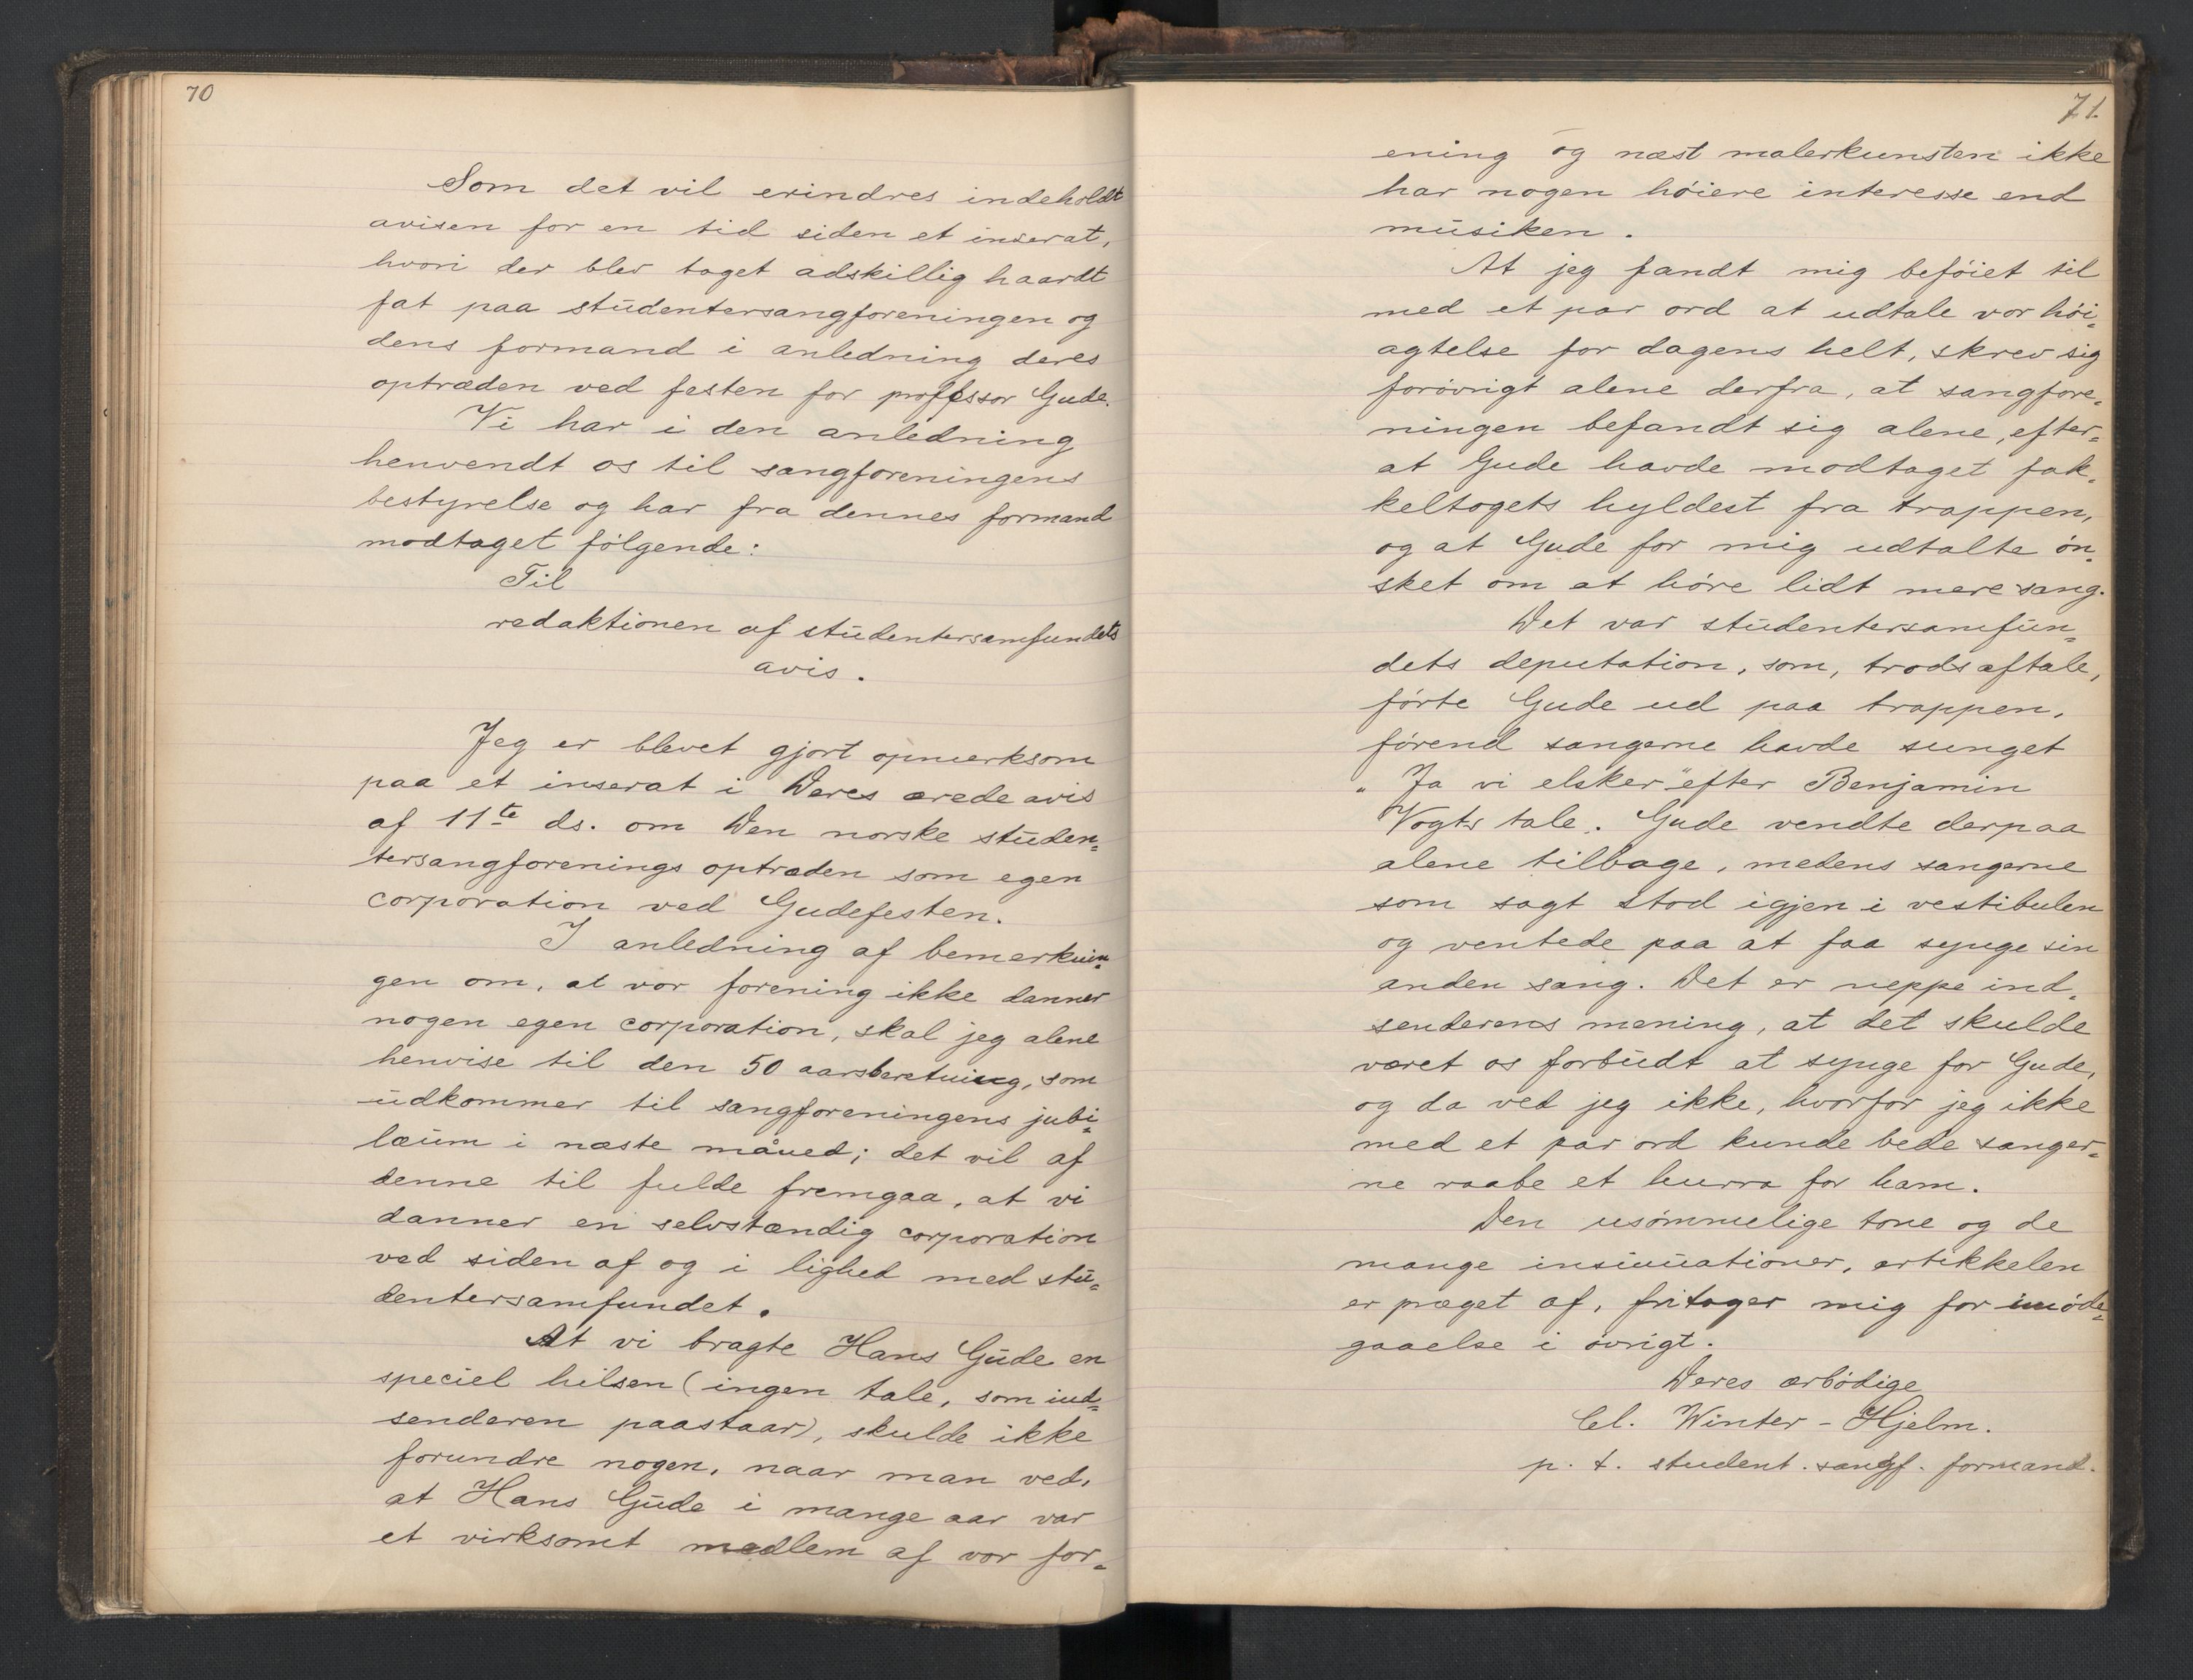 70
Som det vil erindres indeholdt
avisen for en tid siden et inserat,
hvori der blev taget adskillig haardt
fat paa studentersangforeningen og
dens formand i anledning deres
optræden ved festen for professor Gude.
Vi har i den anledning
henvendt os til sangforeningens
bestyrelse og har fra dennes formand
modtaget følgende:
Til
redaktionen af studentersamfundets
avis.
Jeg er blevet gjort opmerksom
paa et inserat i Deres ærede avis
af 11te ds. om Den norske studen=
tersangforenings optræden som egen
corporation ved Gudefesten.
I anledning af bemerknin=
gen om, at vor forening ikke danner
nogen egen corporation, skal jeg alene
henvise til den 50 aarsberetning, som
udkommer til sangforeningens jubi=
læum i næste måned; det vil af
denne til fulde fremgaa, at vi
danner en selvstændig corporation
ved siden af og i lighed med stu=
dentersamfundet.
At vi bragte Hans Gude en
speciel hilsen (ingen tale, som ind=
senderen paastaar), skulde ikke
forundre nogen, naar man ved,
at Hans Gude i mange aar var
et virksomt medlem af vor for=
71.
ening og næst malerkunsten ikke
har nogen høiere interesse end
musiken.
At jeg fandt mig beføiet til
med et par ord at udtale vor høi=
agtelse for dagens helt, skrev sig
forøvrigt alene derfra, at sangfore=
ningen befandt sig alene, efter=
at Gude havde modtaget fak=
keltogets hyldest fra trappen,
og at Gude for mig udtalte øn=
sket om at høre lidt mere sang.
Det var studentersamfun=
dets deputation, som, trods aftale,
førte Gude ud paa trappen,
førend sangerne havde sunget
„Ja vi elsker" efter Benjamin
Vogts tale. Gude vendte derpaa
alene tilbage, medens sangerne
som sagt stod igjen i vestibulen
og ventede paa at faa synge sin
anden sang. Det er neppe ind=
senderens mening, at det skulde
været os forbudt at synge for Gude,
og da ved jeg ikke, hvorfor jeg ikke
med et par ord kunde bede sanger=
ne raabe et hurra for ham.
Den usømmelige tone og de
mange insinuationer, artikkelen
er præget af, fritager mig for imøde=
gaaelse i øvrigt.
Deres ærbødige
Cl. Winter-Hjelm.
p. t. student. sangf. formand.